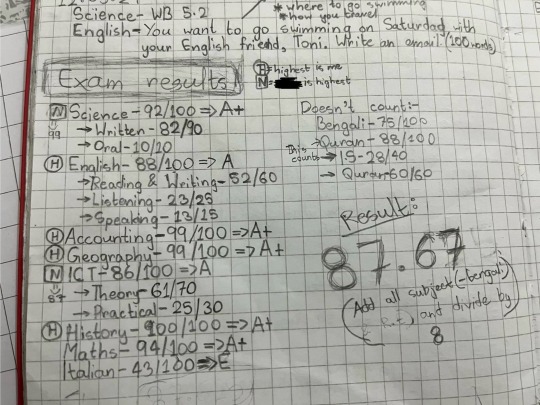 Science-WB 5.2
* where to go swimming
* how you travel
English-You want to go swimming on Saturday with
your English friend, Toni. Write an email. (100 words)
Exam results
(H)=highest is me
[N]= is highest
[N] Science-92/100=>A+
99
→Written-82/90
→Oral-10/10
(H) English-88/100=>A
→Reading & Writing-52/60
→Listening-23/25
→Speaking-13/15
(H) Accounting-99/100=>A+
(H) Geography-99/100=>A+
[N] ICT-86/100=>A
87
→Theory-61/70
→Practical-25/30
(H) History-100/100=>A+
Maths-94/100=>A+
Italian-43/100=>E
Doesn't count:-
Bengali-75/100
→Quran-88/100
This counts → IS-28/40
→ Quran-60/60
Result:
87.67
(Add all subject (-bengali
& R.E) and divide by
8